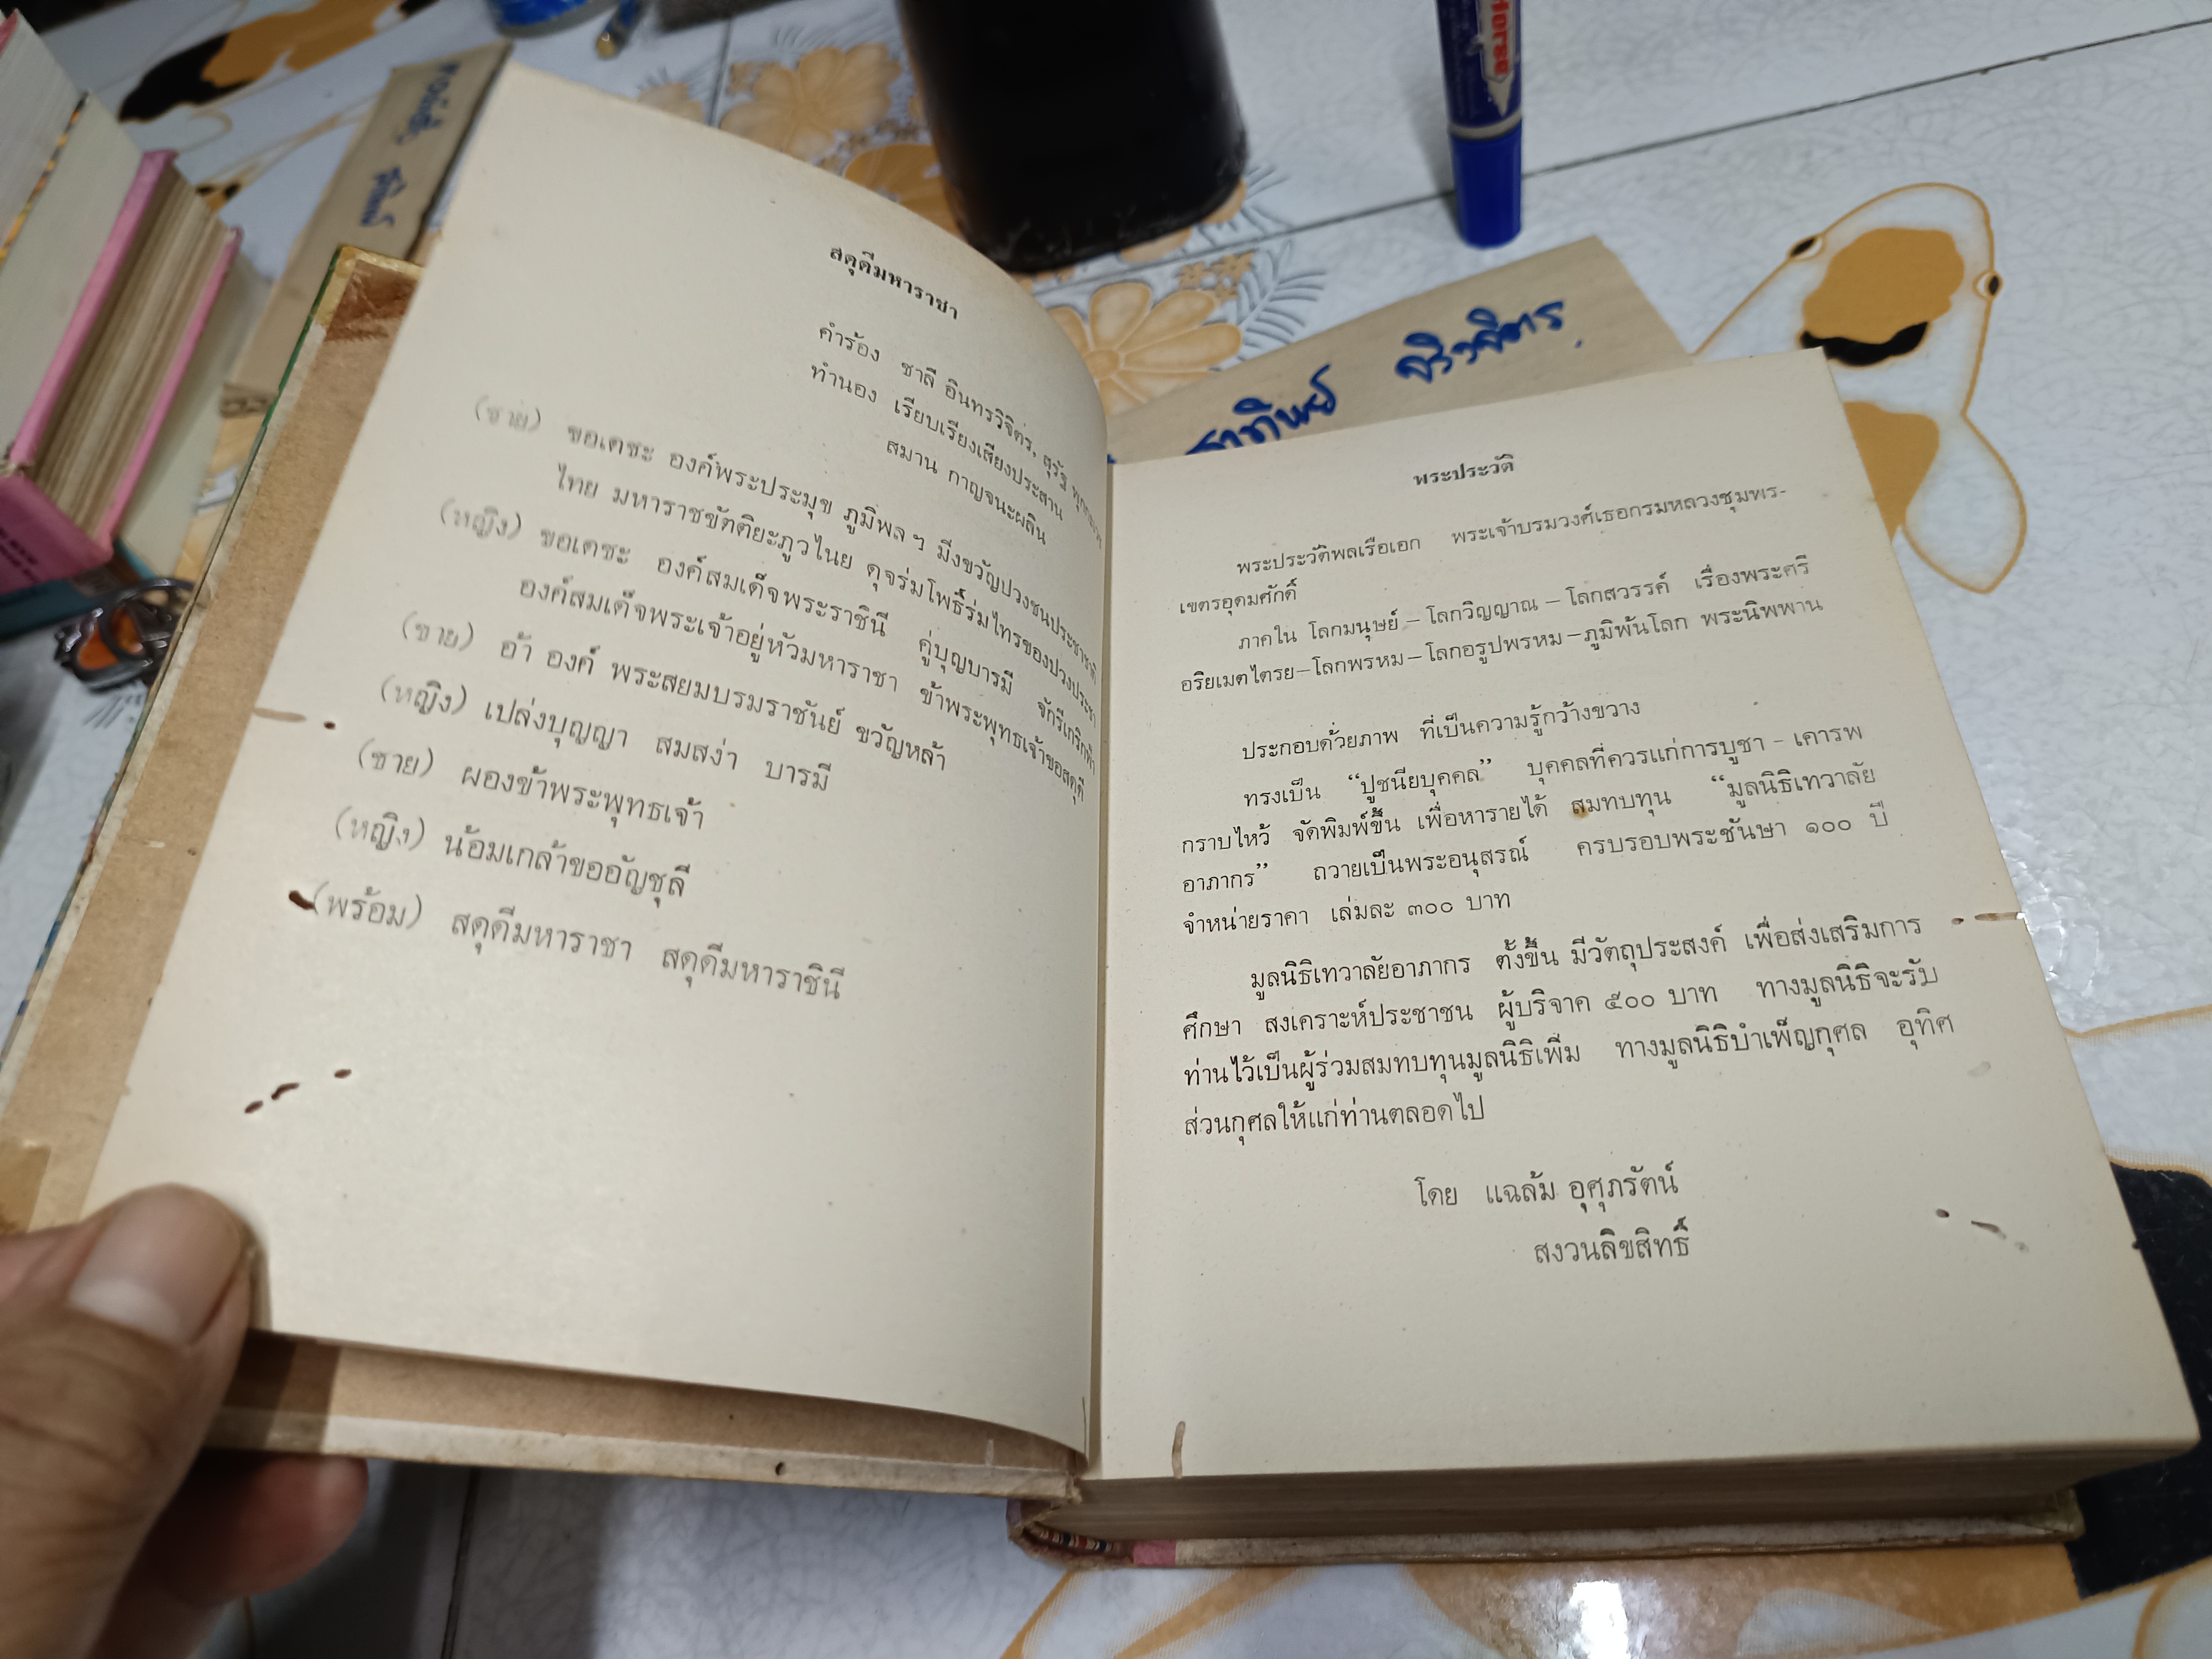 สดุดีมหาราชา
คำร้อง ชาลี อินทรวิจิตร, สุรัฐ
ทำนอง เรียบเรียงเสียงประสาน
สมาน กาญจนะผลิน
(ชาย) ขอเดชะ องค์พระประมุข ภูมิพล ฯ มิ่งขวัญปวงชนประชาชาติ
ไทย มหาราชขัตติยะภูวไนย ดุจร่มโพธิ์ร่มไทรของปวงประชา
(หญิง) ขอเดชะ องค์สมเด็จพระราชินี คู่บุญบารมี จักรีเกริกฟ้า
องค์สมเด็จพระเจ้าอยู่หัวมหาราชา ข้าพระพุทธเจ้าขอสดุดี
(ชาย) อ้า องค์ พระสยมบรมราชันย์ ขวัญหล้า
(หญิง) เปล่งบุญญา สมสง่า บารมี
(ชาย) ผองข้าพระพุทธเจ้า
(หญิง) น้อมเกล้าขออัญชุลี
(พร้อม) สดุดีมหาราชา สดุดีมหาราชินี
พระประวัติ
พระประวัติพลเรือเอก พระเจ้าบรมวงศ์เธอกรมหลวงชุมพร-
เขตรอุดมศักดิ์
ภาคใน โลกมนุษย์ – โลกวิญญาณ – โลกสวรรค์ เรื่องพระศรี
อริยเมตไตรย–โลกพรหม–โลกอรูปพรหม–ภูมิพ้นโลก พระนิพพาน
ประกอบด้วยภาพ ที่เป็นความรู้กว้างขวาง
ทรงเป็น “ปูชนียบุคคล” บุคคลที่ควรแก่การบูชา – เคารพ
กราบไหว้ จัดพิมพ์ขึ้น เพื่อหารายได้ สมทบทุน “มูลนิธิเทวาลัย
อาภากร” ถวายเป็นพระอนุสรณ์ ครบรอบพระชันษา ๑๐๐ ปี
จำหน่ายราคา เล่มละ ๓๐๐ บาท
มูลนิธิเทวาลัยอาภากร ตั้งขึ้น มีวัตถุประสงค์ เพื่อส่งเสริมการ
ศึกษา สงเคราะห์ประชาชน ผู้บริจาค ๕๐๐ บาท ทางมูลนิธิจะรับ
ท่านไว้เป็นผู้ร่วมสมทบทุนมูลนิธิเพิ่ม ทางมูลนิธิบำเพ็ญกุศล อุทิศ
ส่วนกุศลให้แก่ท่านตลอดไป
โดย แฉล้ม อุศุภรัตน์
สงวนลิขสิทธิ์
Horse